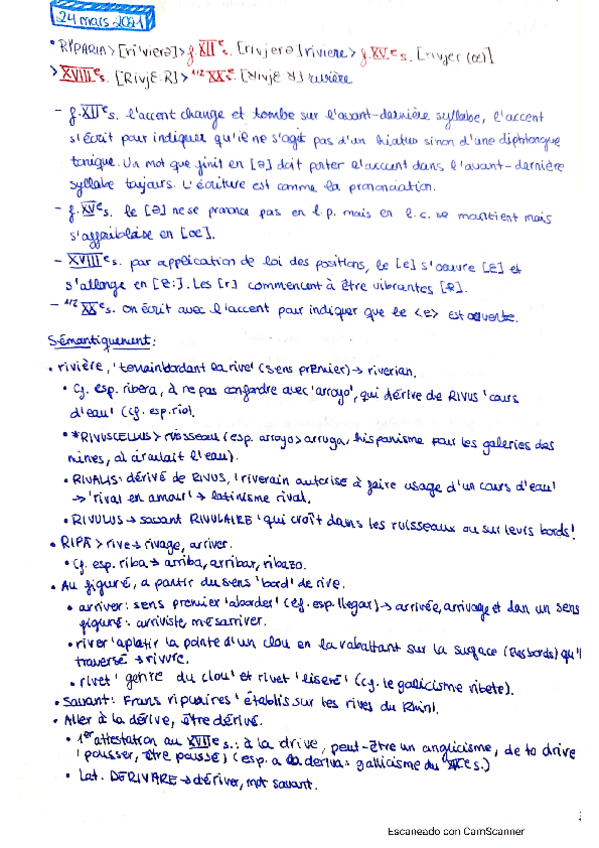 24 mars 2021
• RIPARIA > [ri'vierə] > f. XIIe s. [rivjerə] riviere > f. XVe s. [rivjer (œ)]
> XVIIIe s. [RivjƐ:R] > 1/2 XXe s. [ʁivjƐ ʁ] rivière
– f. XIIe s. l'accent change et tombe sur l'avant-dernière syllabe, l'accent
s'écrit pour indiquer qu'il ne s'agit pas d'un hiatus sinon d'une diphtongue
tonique. Un mot que finit en [ə] doit porter l'accent dans l'avant-dernière
syllabe toujours. L'écriture est comme la prononciation.
– f. XVe s. le [ə] ne se prononce pas en l.p. mais en l.c. se maintient mais
s'affaiblaise en [œ].
– XVIIIe s. par application de loi des positions, le [e] s'oeuvre [Ɛ] et
s'allonge en [Ɛ:]. Les [r] commencent à être vibrantes [R].
– 1/2 XXe s. on écrit avec l'accent pour indiquer que le <e> est ouverte.
Sémantiquement:
• rivière, 'terrain bordant la rive' (sens premier) → riverian.
• Cf. esp. ribera, à ne pas confondre avec 'arroyo', qui dérive de RIVUS 'cours
d'eau' (cf. esp. río).
• *RIVUSCELLUS > ruisseau (esp. arroyo > arruga, hispanisme pour les galeries des
mines, al circulait l'eau).
• RIVALIS: dérivé de RIVUS, 'riverain autorisé à faire usage d'un cours d'eau'
→ 'rival en amour' → latinisme rival.
• RIVULUS → savant RIVULAIRE 'qui croît dans les ruisseaux ou sur leurs bords'.
• RIPA > rive → rivage, arriver.
• Cf. esp. riba → arriba, arribar, ribazo.
• Au figuré, a partir du sens 'bord' de rive.
• arriver: sens premier 'aborder' (cf. esp. llegar) → arrivée, arrivage et dan un sens
figuré: arriviste, mésarriver.
• river 'aplatir la pointe d'un clou en la rabattant sur la surface (les bords) qu'il
traverse → rivure.
• rivet 'genre du clou' et rivet 'liseré' (cf. le galicisme ribete).
• Savant: Frans ripuaires 'établis sur les rives du Rhin'.
• Aller à la dérive, être dérivé.
• 1er attestation au XVIIe s.: à la drive, peut-être un anglicisme, de to drive
'pousser, être poussé' (esp. a la deriva: gallicisme du XIXe s.)
• Lat. DERIVARE → dériver, mot savant.
Escaneado con CamScanner